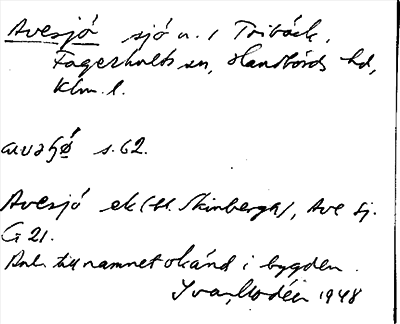 Avesjö sjö n. / Tribäck,
Fagerhults sn, Handbörds hd,
Klm. l.
avəɧø s. 62.
Avesjö ek (st. Skinberga), Ave Sj.
G 21.
Anl. till namnet okänd i bygden.
Ivar Modéer 1948